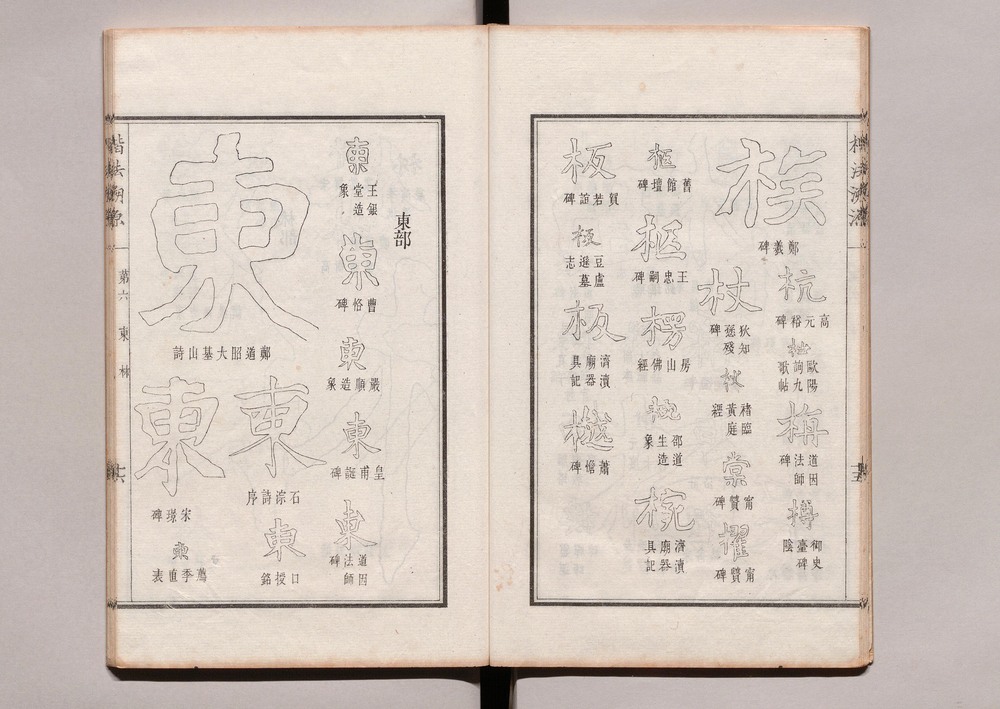 鄭羲碑
杭
高元裕碑
歐陽詢九歌帖
梅
道因法師碑
樽
御史臺碑陰
杖
狄知愻殘碑
杖
褚臨黃庭經
棠
甯贙碑
櫂
甯贙碑
柩
舊館壇碑
柩
王忠嗣碑
楞
房山佛經
椀
邵道生造象
椀
濟瀆廟器具記
板
賀若誼碑
板
豆盧遜墓志
板
濟瀆廟器具記
蕭憺碑
東部
東
王銀堂造象
東
曹恪碑
東
嚴順造象
東
皇甫誕碑
東
道因法師碑
東
鄭道昭大基山詩
東
石淙詩序
東
口授銘
東
宋璟碑
東
薦季直表
楷法溯源
第六
東